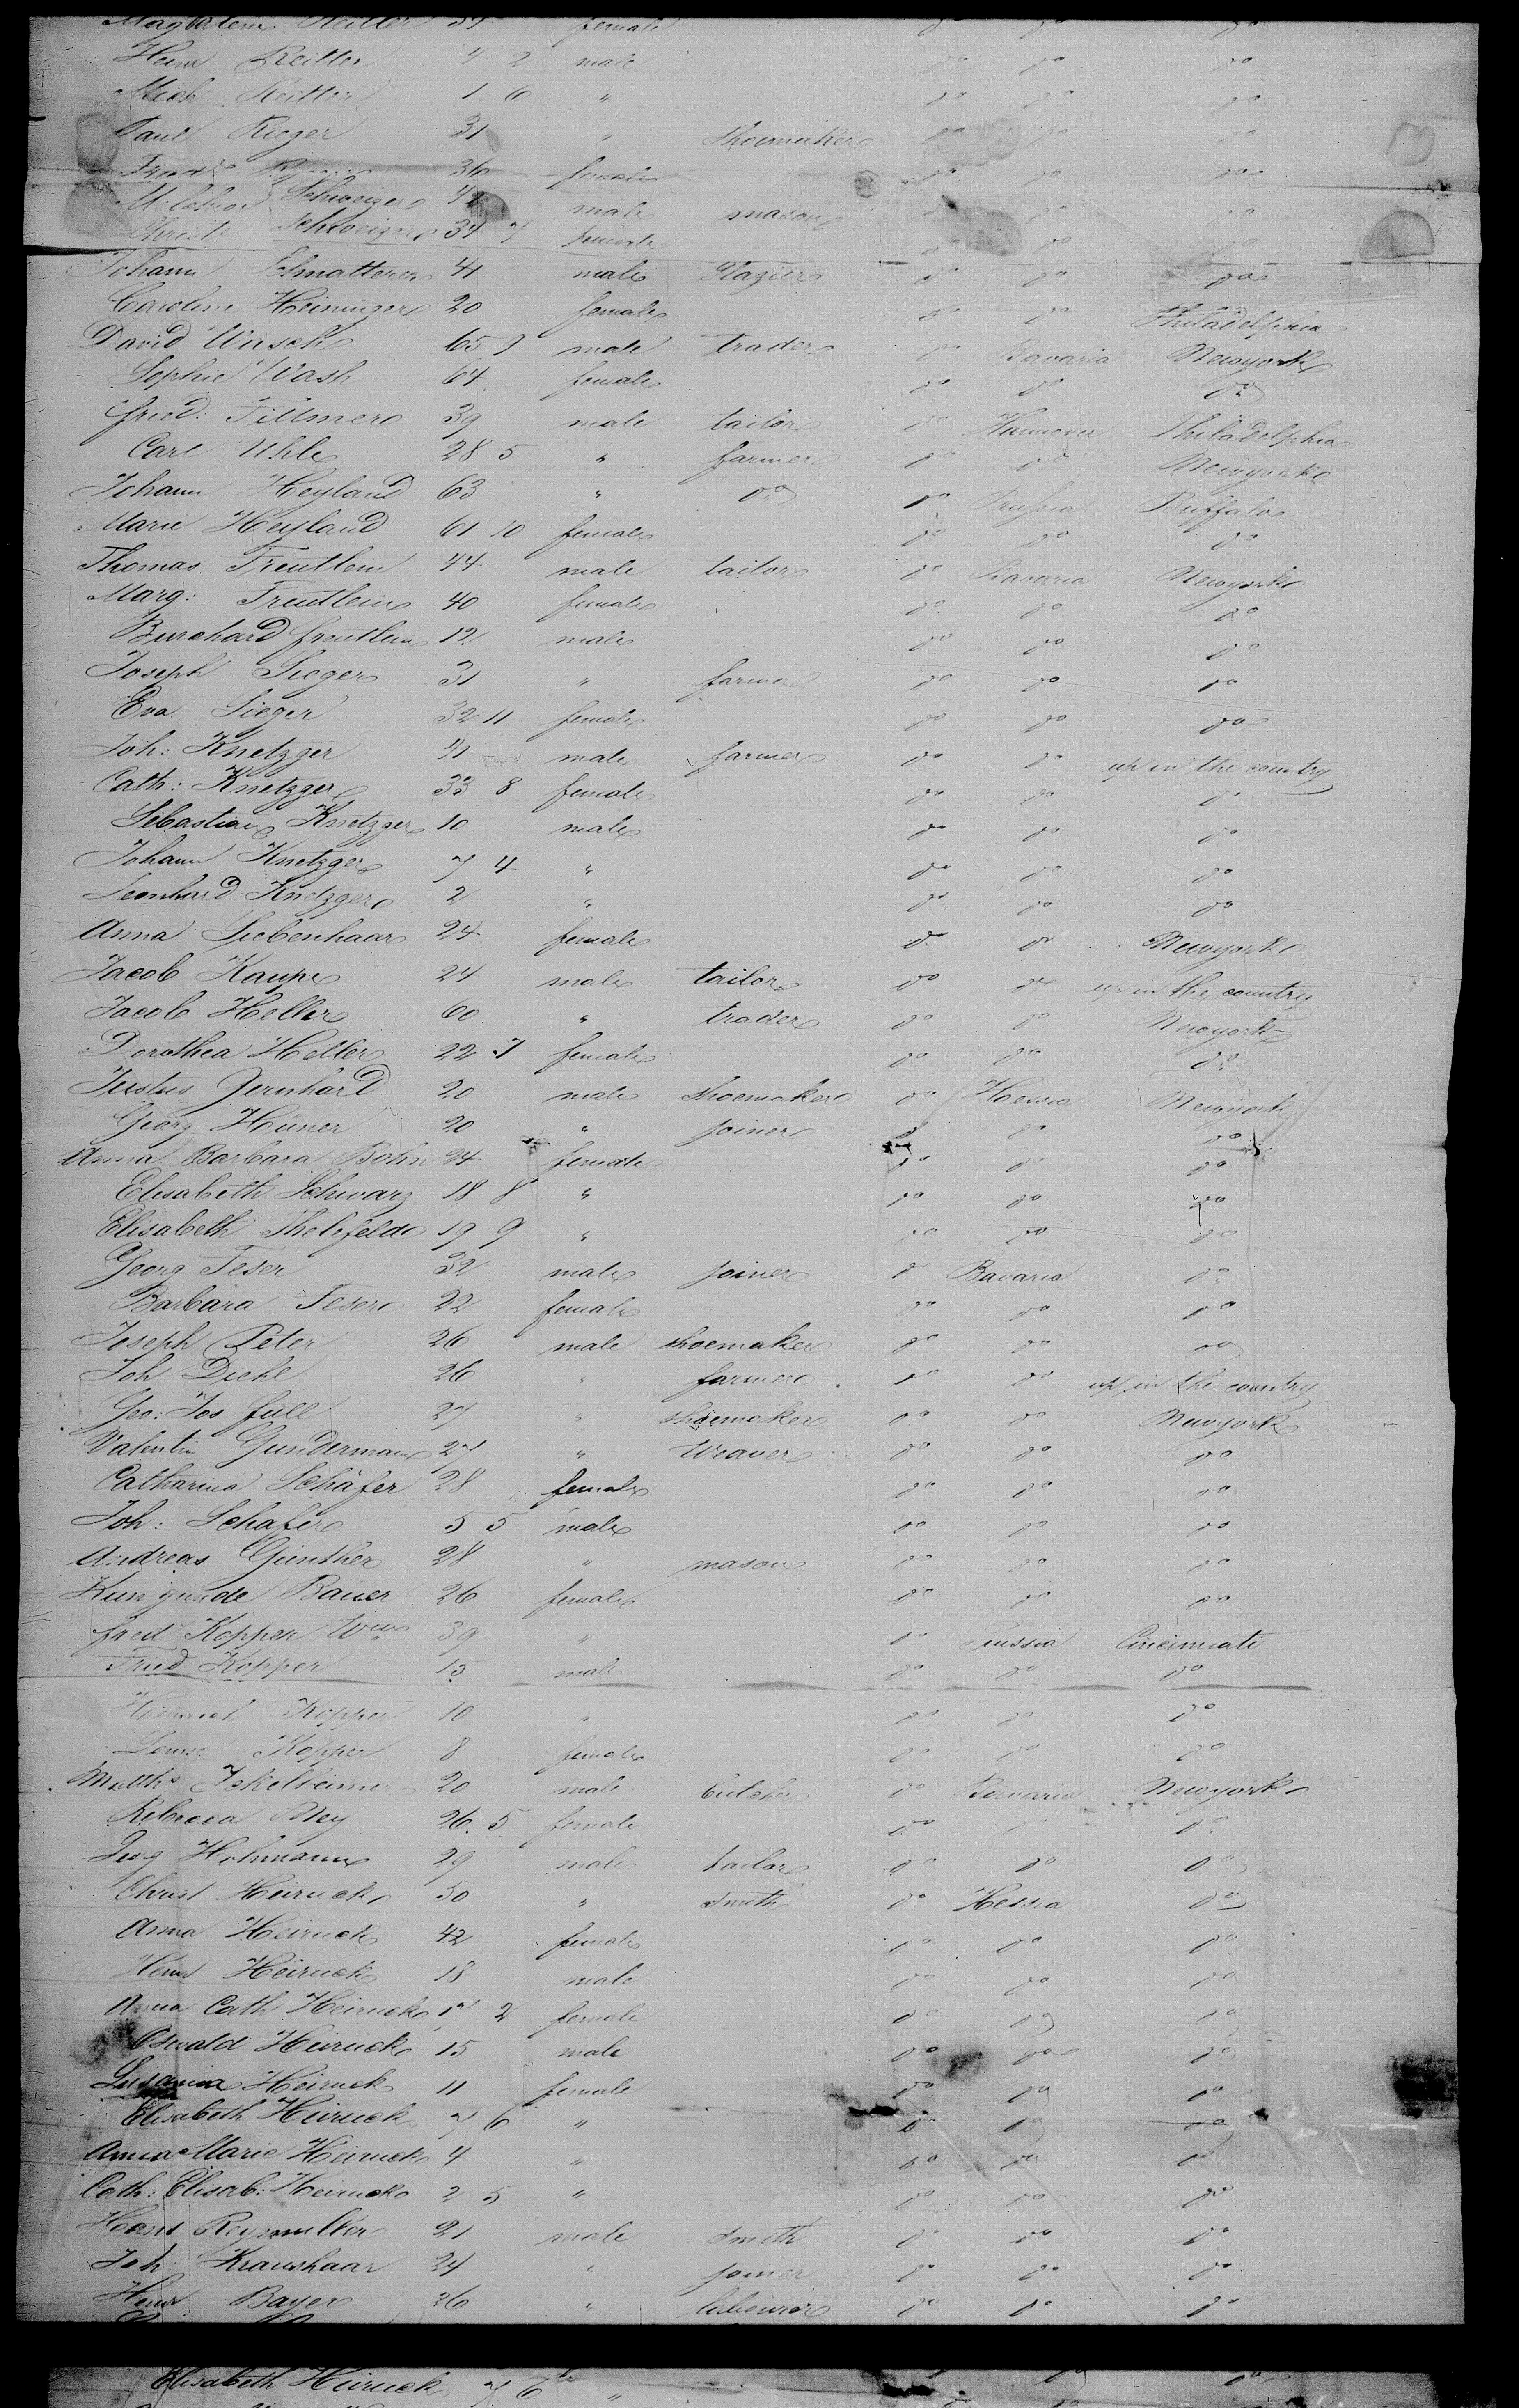 Magdalena Reitter 34 female do do do
Heinr Reitter 4 2 male do do do
Mich Reitter 1 6 " do do do
Paul Rieger 31 " shoemaker do do do
36 female do do do
Schweizer male mason do do do
Schweizer 34 7 female do do do
Johann Schmatterer 41 male Glazier do do do
Caroline Heininger 20 female do do Philadelphia
David Wasch 65 9 male trader do Bavaria Newyork
Sophie Wash 64 female do do do
Fried: Fillmer 39 male tailor do Hannover Philadelphia
Carl Uhle 28 5 " farmer do do Newyork
Johann Heyland 63 " do do Prussia Buffalo
Marie Heyland 61 10 female do do do
Thomas Treutlein 44 male tailor do Bavaria Newyork
Marg: Treutlein 40 female do do do
Burchard Treutlein 12 male do do do
Joseph Sieger 31 " farmer do do do
Eva Sieger 32 11 female do do do
Joh: Knetzger 41 male farmer do do up in the country
Cath: Knetzger 33 8 female do do do
Sebastian Knetzger 10 male do do do
Johann Knetzger 7 4 " do do do
Leonhard Knetzger 2 " do do do
Anna Liebenhaar 24 female do do Newyork
Jacob Kaupe 24 male tailor do do up in the country
Jacob Heller 60 " trader do do Newyork
Dorothea Heller 22 7 female do do do
Justus Gernhard 20 male shoemaker do Hessia Newyork
Georg Hüner 20 " joiner do do do
Anna Barbara Bohn 24 female do do do
Elisabeth Schwarz 18 8 " do do do
Elisabeth 19 9 " do do do
Georg Feser 32 male joiner do Bavaria do
Barbara Feser 22 female do do do
Joseph Peter 26 male shoemaker do do do
Joh Diehl 26 " farmer do do up in the country
Geo: Jos full 27 " shoemaker do do Newyork
Valentin Gundermann 27 " Weaver do do do
Catharina Schäfer 28 female do do do
Joh: Schäfer 5 5 male do do do
Andreas Günther 28 " mason do do do
Kunigunde Bauer 26 female do do do
fried Kopper 39 " do Prussia Cincinnati
Fried Kopper 15 male do do do
Heinrich Kopper 10 " do do do
Louise Kopper 8 female do do do
Matths Ickelheimer 20 male butcher do Bavaria Newyork
Rebecca Mey 26 5 female do do do
Hohmann 29 male tailor do do do
Christ Heiruck 50 " smith do Hessia do
Anna Heiruck 42 female do do do
Heinr Heiruck 18 male do do do
Anna Cath Heiruck 17 2 female do do do
Oswald Heiruck 15 male do do do
Susanna Heiruck 11 female do do do
Elisabeth Heiruck 7 6 " do do do
Anna Marie Heiruck 4 " do do do
Cath: Elisab: Heiruck 2 5 " do do do
Hans 21 male smith do do do
Joh: Kraushaar 24 " joiner do do do
Heinr Bayer 26 " labourer do do do
Elisabeth Heiruck 7 6 " do do